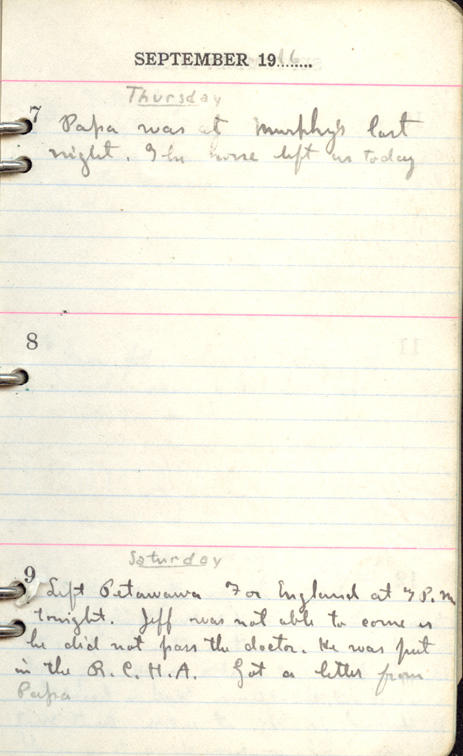 SEPTEMBER 1916
Thursday
7
Papa was at Murphy's last
night. The horse left us today
8
Saturday
9
Left Petawawa For England at 7 P.M
tonight. Jeff was not able to come as
he did not pass the doctor. He was put
in the R.C.H.A. Got a letter from
Papa